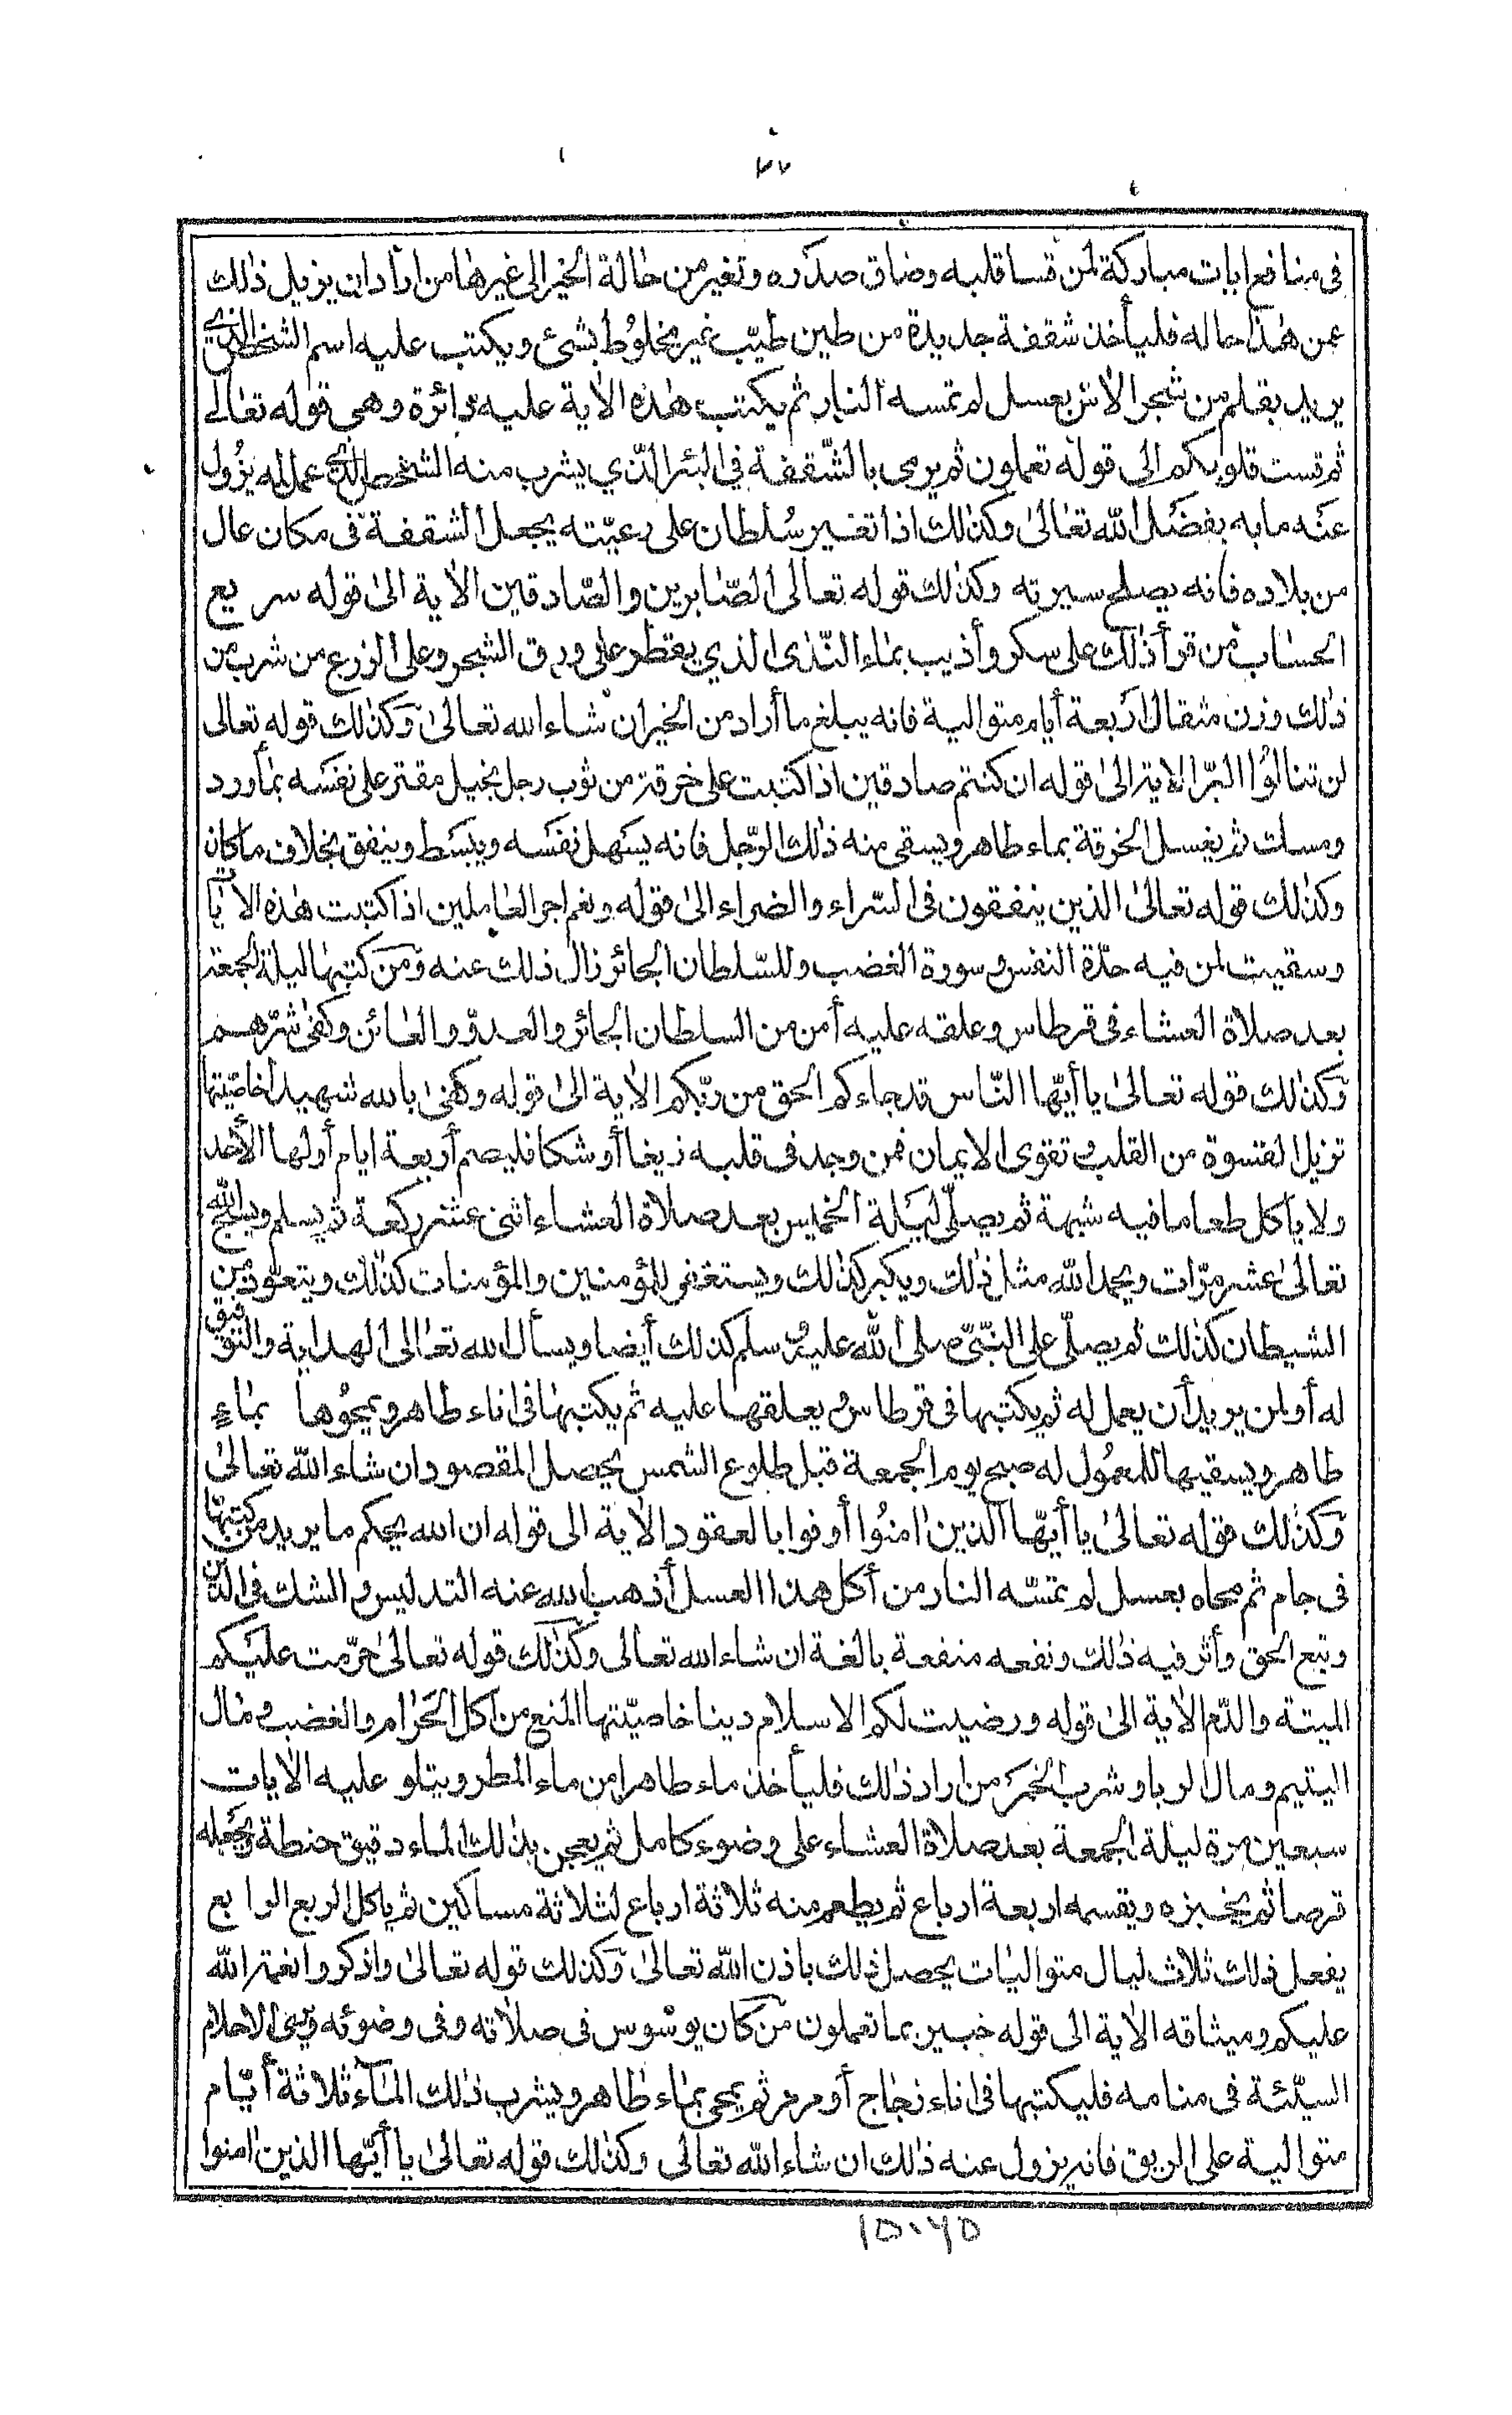 ٢٧
في منافع ايات مباركة لمن قسا قلبه وضاق صدره وتغير من حالة الخير الى غيرها من أراد ان يزيل ذلك
عمن هذا حاله فليأخذ شقفة جديدة من طين طيّب غير مخلوُط بشئ ويكتب عليه اسم الشخص الذي
يريد بقلم من شجر الاتر بعسل لم تمسه النار ثم يكتب هذه الاٰية عليه دائرة وهي قوله تعالى
ثم قست قلوبكم الى قوله تعملون ثم يرمى بالشّقفة في البئر الّذي يشرب منه الشخص الذي عمل له يزُول
عنه ما به بفضل الله تعالىٰ وكذلك اذا تغير سُلطان على رعيّته يجعل الشقفة في مكان عال
من بلاده فانه يصلح سيرته وكذلك قوله تعالى الصّابرين والصّادقين الاٰية الىٰ قوله سريع
الحساب من قرأ ذلك على سكر وأذيب بماء النّدى الذي يقطر على ورق الشجر وعلى الزرع من شرب من
ذلك وزن مثقال اربعة أيام متوالية فانه يبلغ ما أراد من الخير ان شاء الله تعالىٰ وكذلك قوله تعالى
لن تنالوُا البرّ الاية الىٰ قوله ان كنتم صادقين اذا كتبت على خرقة من ثوب رجل بخيل مقتر على نفسه بماورد
ومسك ثم يغسل الخرقة بماء طاهر ويسقى منه ذلك الرّجل فانه يسهل نفسه ويبسط وينفق بخلاف ما كان
وكذلك قوله تعالىٰ الذين ينفقون في السّراء والضراء الىٰ قوله ونعم اجر العاملين اذا كتبت هذه الاٰيات
وسقيت لمن فيه حدّة النفس وسورة الغضب وللسّلطان الجائر زال ذلك عنه ومن كتبها ليلة الجمعة
بعد صلاة العشاء في قرطاس وعلقه عليه أمن من السلطان الجائر والعدوّ والخائن وكفى شرّهم
وكذلك قوله تعالىٰ يا أيّها النّاس قد جاءكم الحق من ربّكم الاٰية الىٰ قوله وكفىٰ بالله شهيدا خاصّيتها
تزيل القسوة من القلب وتقوى الايمان فمن وجد في قلبه زيغا أو شكا فليصم أربعة ايام أولها الأحد
ولا يأكل طعاما فيه شبهة ثم يصلّي ليلة الخميس بعد صلاة العشاء اثنى عشر ركعة ثم يسلم ويسبّح الله
تعالىٰ عشر مرّات ويحمد الله مثل ذلك ويكبر كذلك ويستغفر للمؤمنين والمؤمنات كذلك ويتعوّذ من
الشيطان كذلك ثم يصلّي على النّبيّ صلى الله عليه وسلم كذلك أيضا ويسأل الله تعالى الهداية والتوفيق
له أو لمن يريد أن يعمل له ثم يكتبها في قرطاس ويعلقها عليه ثم يكتبها في اناء طاهر ويمحُوها بماءٍ
طاهر ويسقيها للمعموُل له صبح يوم الجمعة قبل طلوع الشمس يحصل المقصود ان شاء الله تعالىٰ
وكذلك قوله تعالىٰ يا أيّها الّذين اٰمنُوا أوفوا بالعقود الاٰية الى قوله ان الله يحكم ما يريد من كتبها
في جام ثم محاه بعسل لم تمسّه النار من أكل هذا العسل أذهب الله عنه التدليس والشك في الدّين
وتبع الحق وأثر فيه ذلك ونفعه منفعة بالغة ان شاء الله تعالى وكذلك قوله تعالىٰ حرّمت عليكم
الميتة والدّم الاٰية الىٰ قوله ورضيت لكم الاسلام دينا خاصيّتها المنع من اكل الحَرام والغضب ومال
اليتيم ومال الربا وشرب الخمر من اراد ذلك فليأخذ ماء طاهرا من ماء المطر ويتلو عليه الاٰيات
سبعين مرة ليلة الجمعة بعد صلاة العشاء على وضوء كامل ثم يعجن بذلك الماء دقيق حنطة ويجعله
قرصا ثم يخبزه ويقسمه اربعة ارباع ثم يطعم منه ثلاثة ارباع لثلاثة مساكين ثم يأكل الربع الرابع
يفعل ذلك ثلاث ليال متواليات يحصل ذلك باذن الله تعالىٰ وكذلك قوله تعالىٰ واذكروا نعمة الله
عليكم وميثاقه الاٰية الى قوله خبير بما تعملون من كان يوسْوس في صلاته وفي وضوئه ويرى الاحلام
السيّئة في منامه فليكتبها في اناء زجاج أو مرمر ثم يمحى بماء طاهر ويشرب ذلك المآء ثلاثة أيّام
متوالية على الريق فانه يزول عنه ذلك ان شاء الله تعالى وكذلك قوله تعالىٰ يا أيّها الذين اٰمنوا
١٥٠٦٥